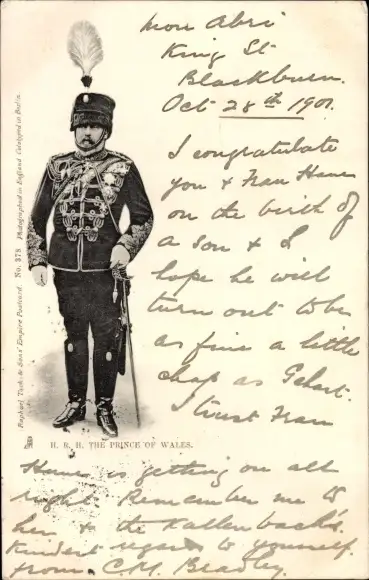 Mon Abri
King St
Blackburn.
Oct 28th 1901.
I congratulate
you & Frau Hame
on the birth of
a son & I
hope he will
turn out to be
as fine a little
chap as Gehart.
I trust Frau
H. R. H. THE PRINCE OF WALES.
Hame is getting on all
right. Remember me to
her & the Kallenbach's.
Kindest regards to yourself.
from C. M. Bradley.
Raphael Tuck & Sons' Empire Postcard. No. 378 Photographed in England Collotyped in Berlin.